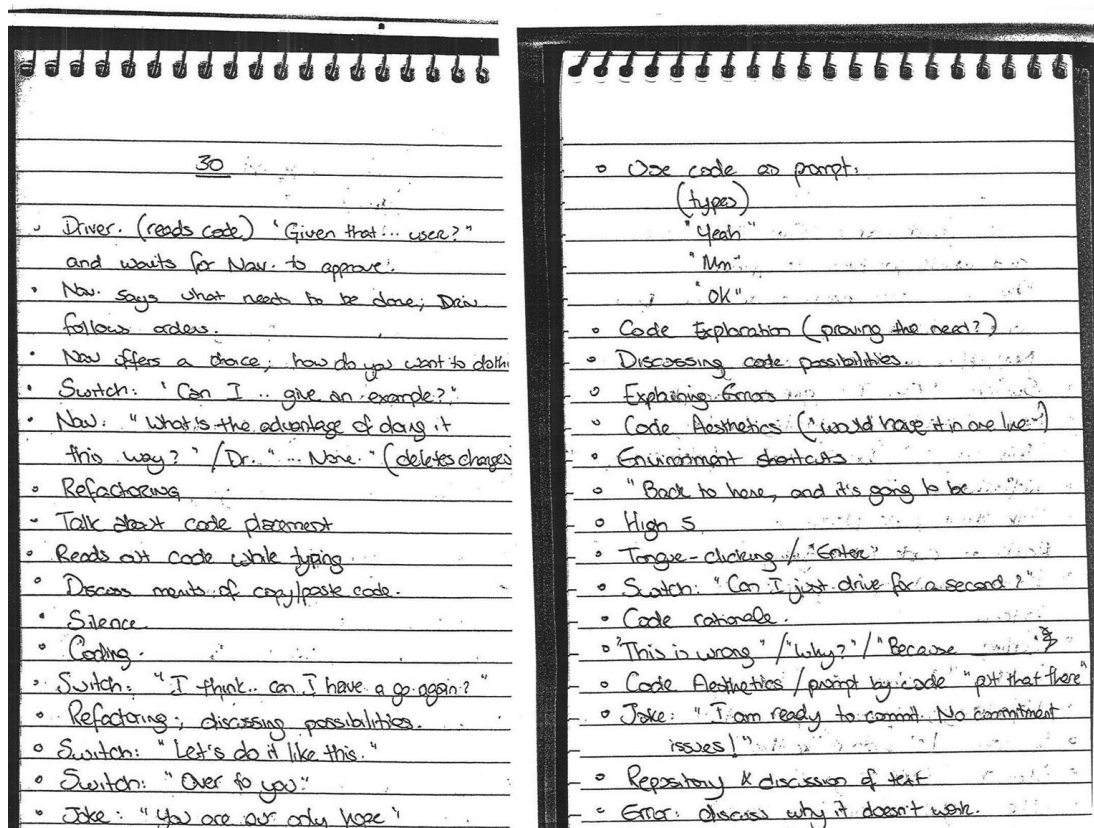 30
• Driver. (reads code) "Given that... user?"
and waits for Nav. to approve.
• Nav. says what needs to be done; Driv
follows orders.
• Nav offers a choice; how do you want to do thi
• Switch: "Can I .. give an example?"
• Nav: "What is the advantage of doing it
this way?" / Dr. "... None." (deletes changes
• Refactoring
• Talk about code placement
• Reads out code while typing
• Discuss merits of copy/paste code.
• Silence
• Coding.
• Switch: "I think.. can I have a go again?"
• Refactoring; discussing possibilities.
• Switch: "Let's do it like this."
• Switch: "Over to you"
• Joke: "You are our only hope"
• Use code as prompt:
(types)
"Yeah"
"Mm"
"OK"
• Code Exploration (proving the need?)
• Discussing code possibilities.
• Explaining Errors
• Code Aesthetics ("would have it in one line")
• Environment shortcuts
• "Back to here, and it's going to be ... "
• High 5
• Tongue-clicking / "Enter"
• Switch: "Can I just drive for a second?"
• Code rationale.
• "This is wrong" / "Why?" / "Because ____"
• Code Aesthetics / prompt by code "put that there"
• Joke: "I am ready to commit. No commitment
issues!"
• Repository & discussion of test
• Error: discuss why it doesn't work.